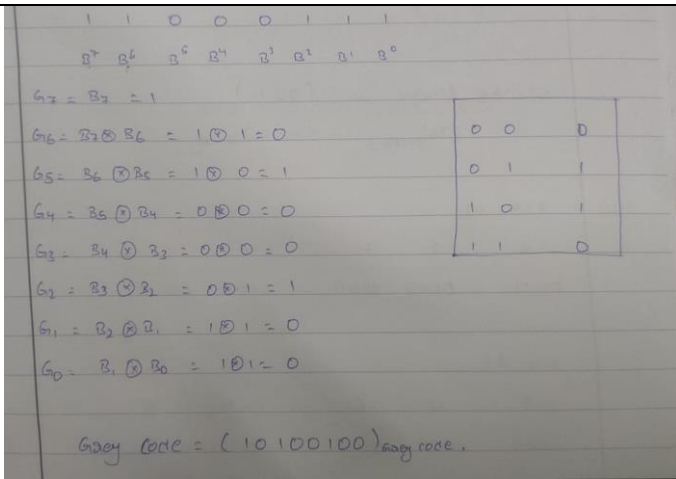 1 1 0 0 0 1 1 1
B⁷ B⁶ B⁵ B⁴ B³ B² B¹ B⁰
G₇ = B₇ = 1
G₆ = B₇ ⊗ B₆ = 1 ⊗ 1 = 0
G₅ = B₆ ⊗ B₅ = 1 ⊗ 0 = 1
G₄ = B₅ ⊗ B₄ = 0 ⊗ 0 = 0
G₃ = B₄ ⊗ B₃ = 0 ⊗ 0 = 0
G₂ = B₃ ⊗ B₂ = 0 ⊗ 1 = 1
G₁ = B₂ ⊗ B₁ = 1 ⊗ 1 = 0
G₀ = B₁ ⊗ B₀ = 1 ⊗ 1 = 0
0 0 0
0 1 1
1 0 1
1 1 0
Gray Code = (10100100) Gray code.